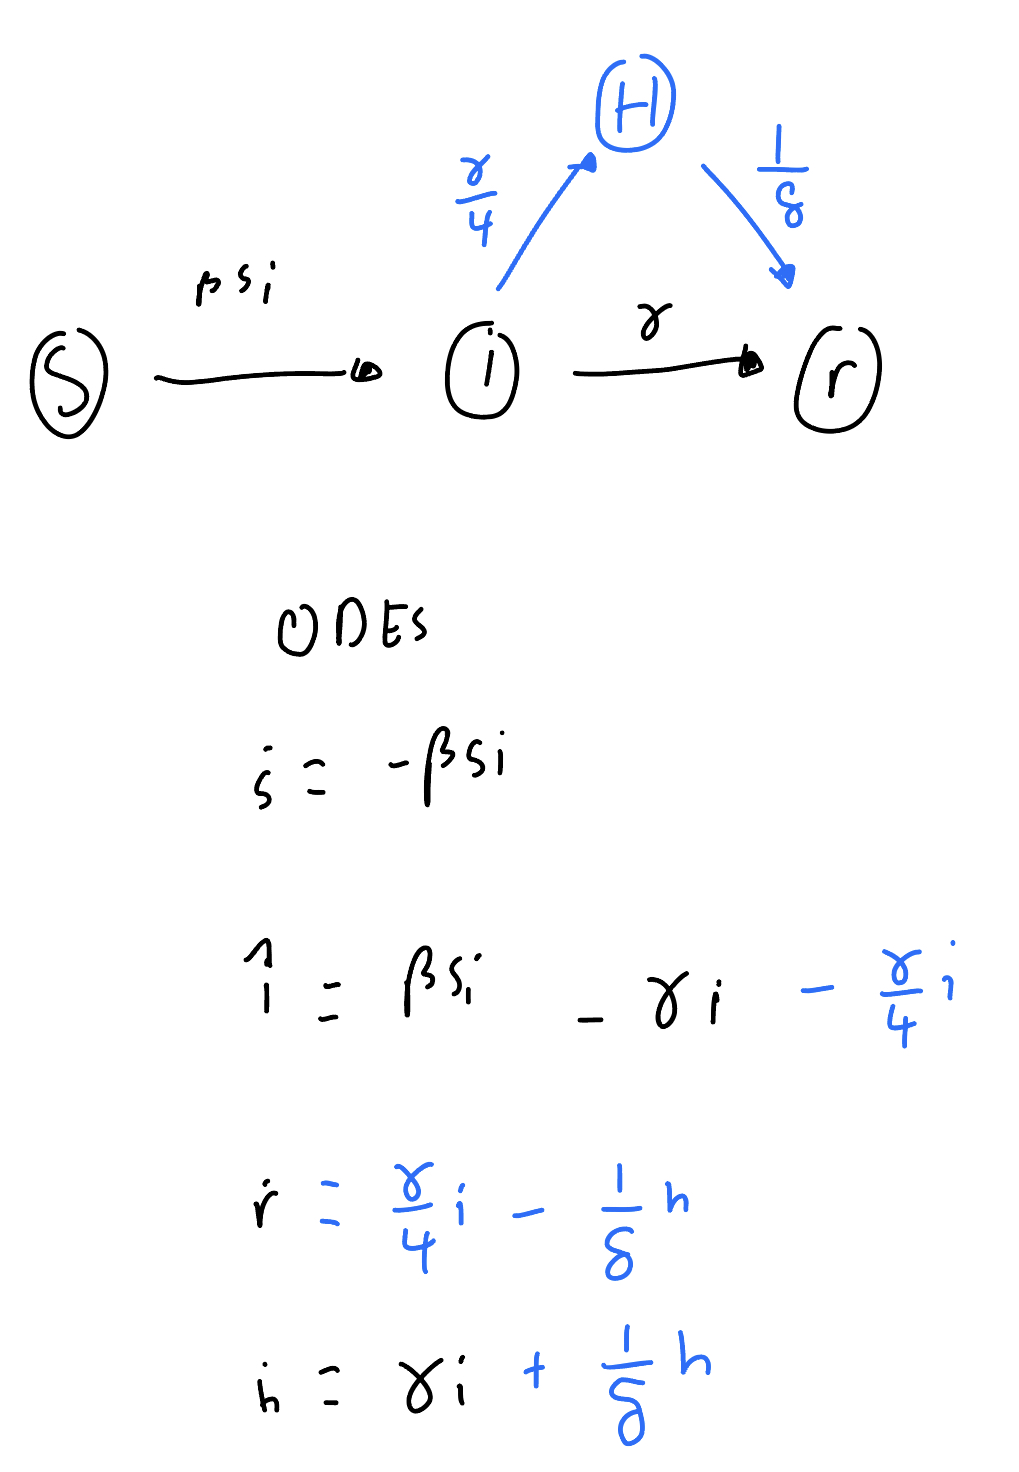 H
γ/4
1/δ
βsi
γ
S
i
r
ODEs
ṡ = -βsi
i̇ = βsi - γi - γ/4 i
ṙ = γ/4 i - 1/δ h
ḣ = γi + 1/δ h